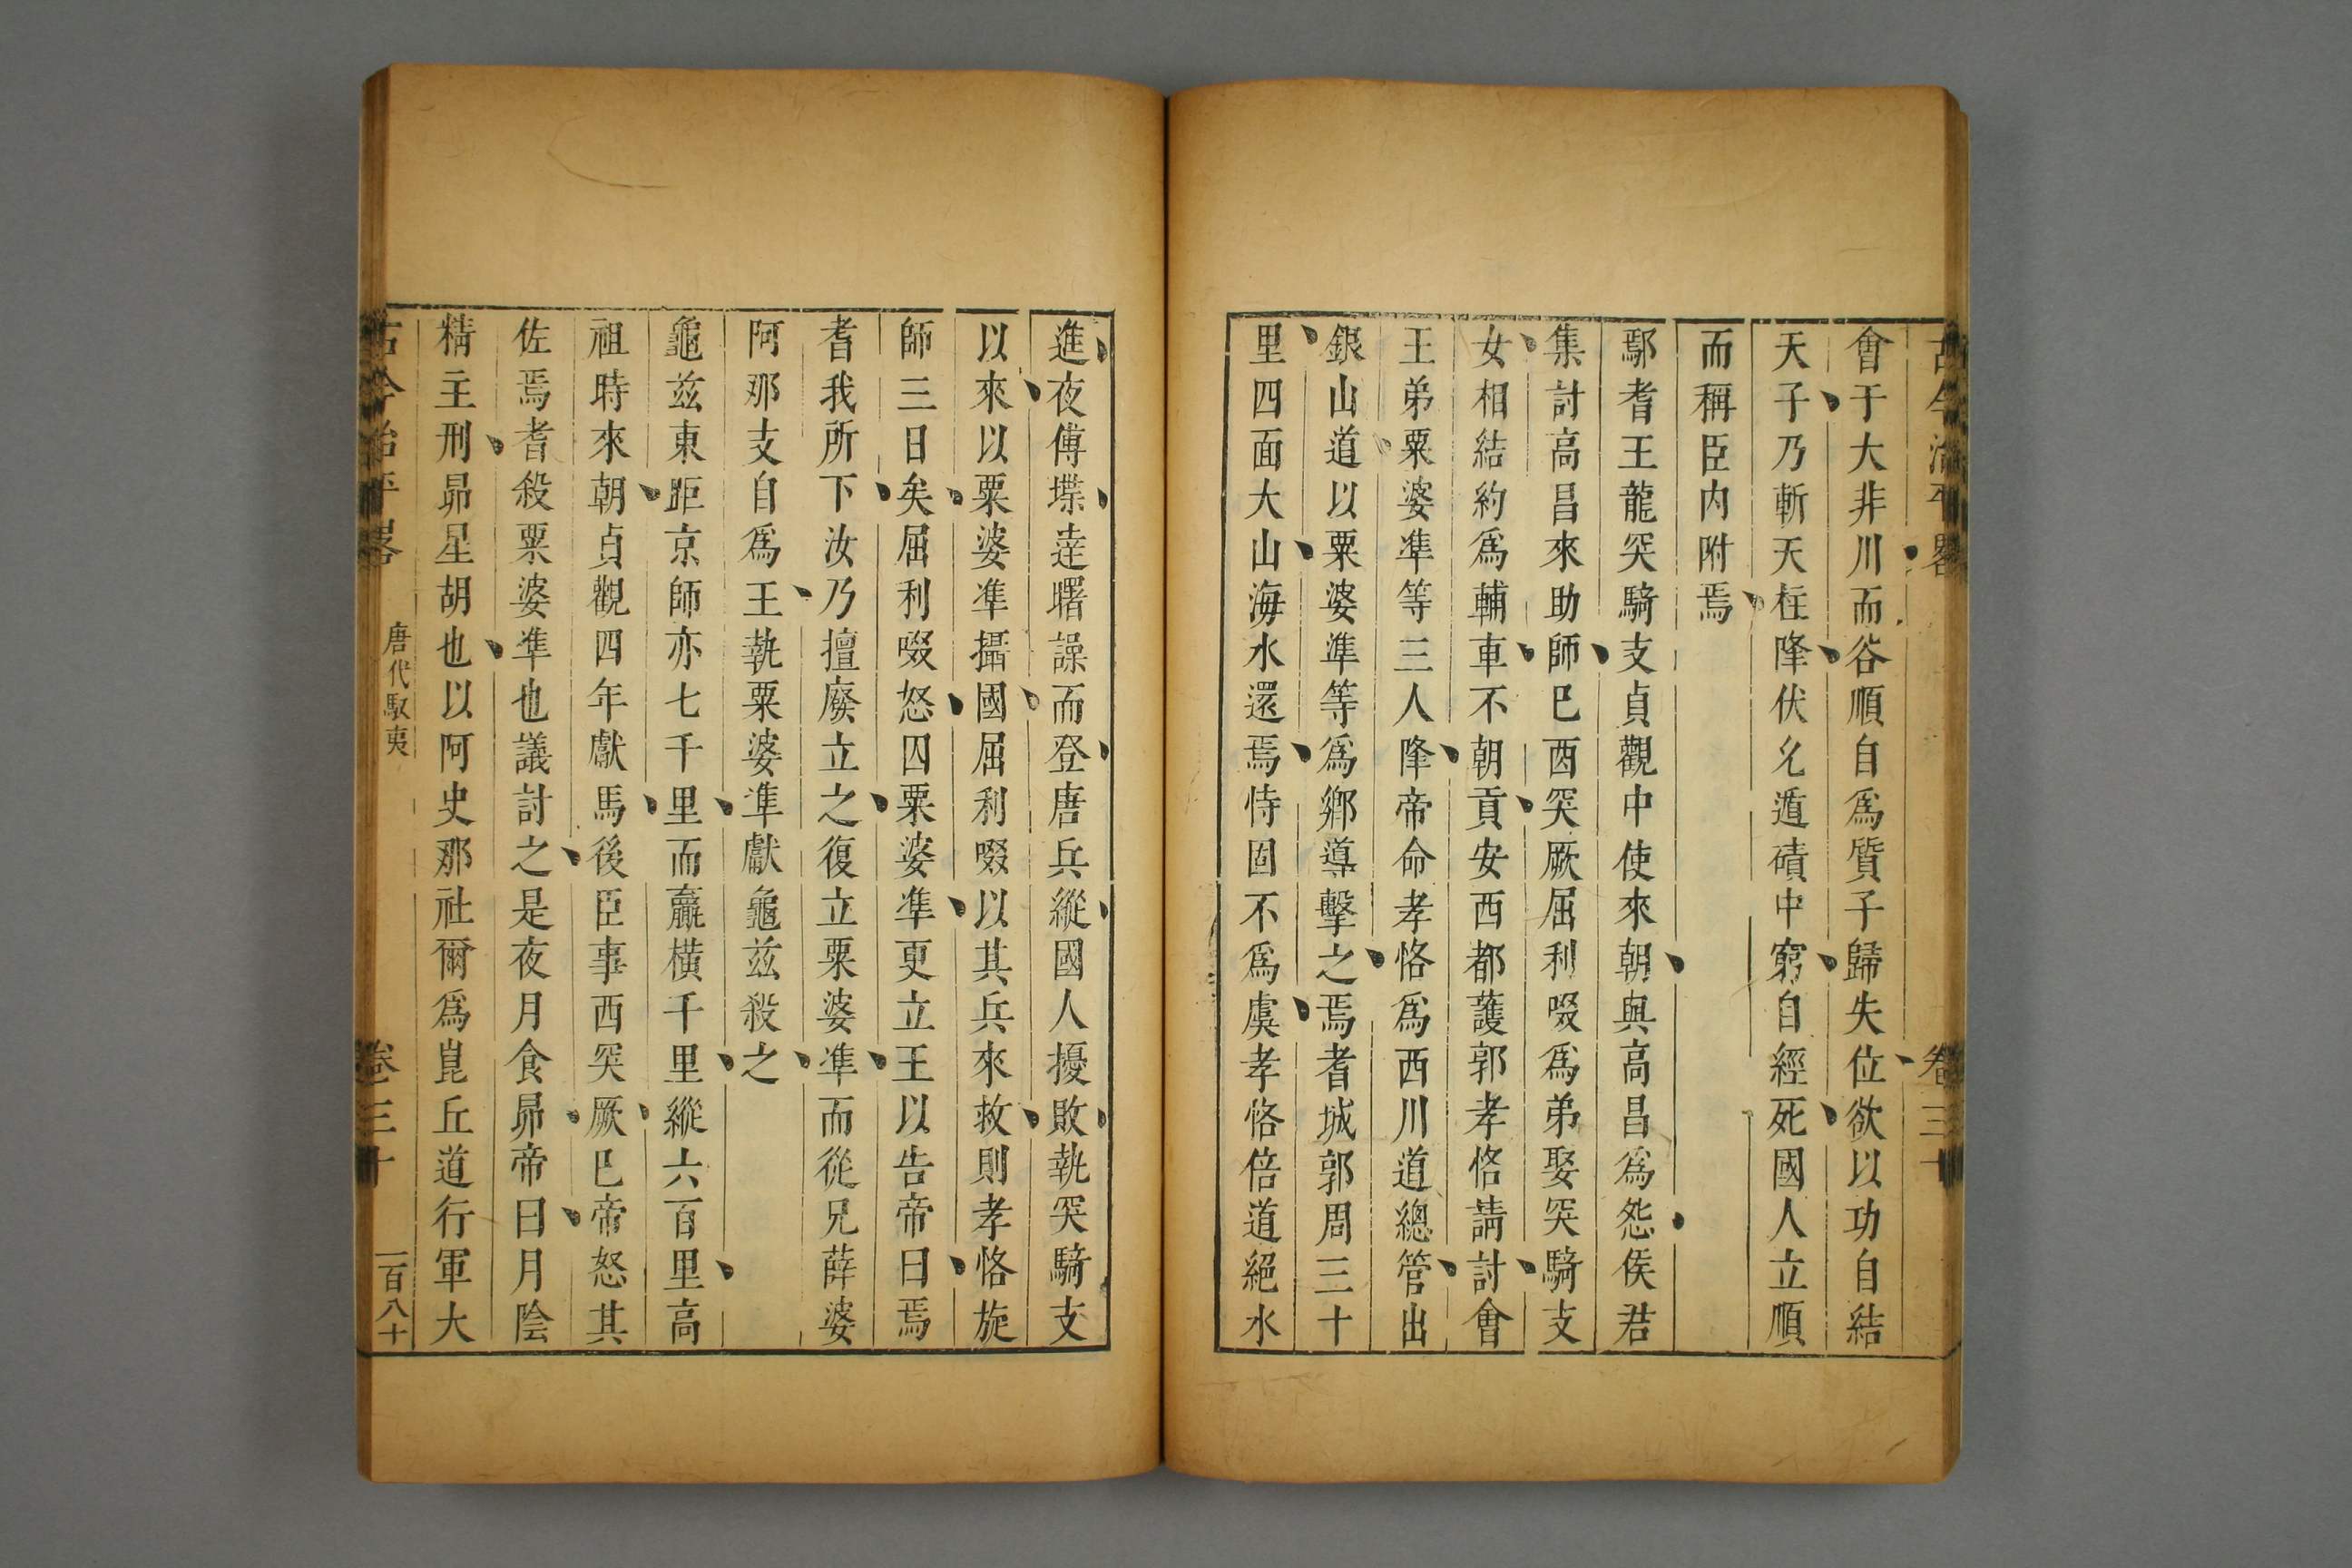 古今治平畧 卷三十
會于大非川而谷順自爲質子歸失位欲以功自結
天子乃斬天柱降伏允遁磧中窮自經死國人立順
而稱臣内附焉
鄢耆王龍突騎支貞觀中使來朝與高昌爲怨侯君
集討高昌來助師巳西突厥屈利啜爲弟娶突騎支
女相結約爲輔車不朝貢安西都護郭孝恪請討會
王弟粟婆凖等三人降帝命孝恪爲西川道總管出
銀山道以粟婆準等爲鄉導擊之焉耆城郭周三十
里四面大山海水還焉恃固不爲虞孝恪倍道絕水
進夜傅堞遲曙譟而登唐兵縱國人擾敗執突騎支
以來以粟婆凖攝國屈利啜以其兵來救則孝恪旋
師三日矣屈利啜怒囚粟婆凖更立王以告帝曰焉
耆我所下汝乃擅廢立之復立粟婆凖而從兄薛婆
阿那支自爲王執粟婆凖獻龜兹殺之
龜兹東距京師亦七千里而羸橫千里縱六百里高
祖時來朝貞觀四年獻馬後臣事西突厥巳帝怒其
佐焉耆殺粟婆凖也議討之是夜月食昴帝曰月陰
精主刑昴星胡也以阿史那社爾爲崑丘道行軍大
古今治平畧 唐代馭夷 卷三十 一百八十